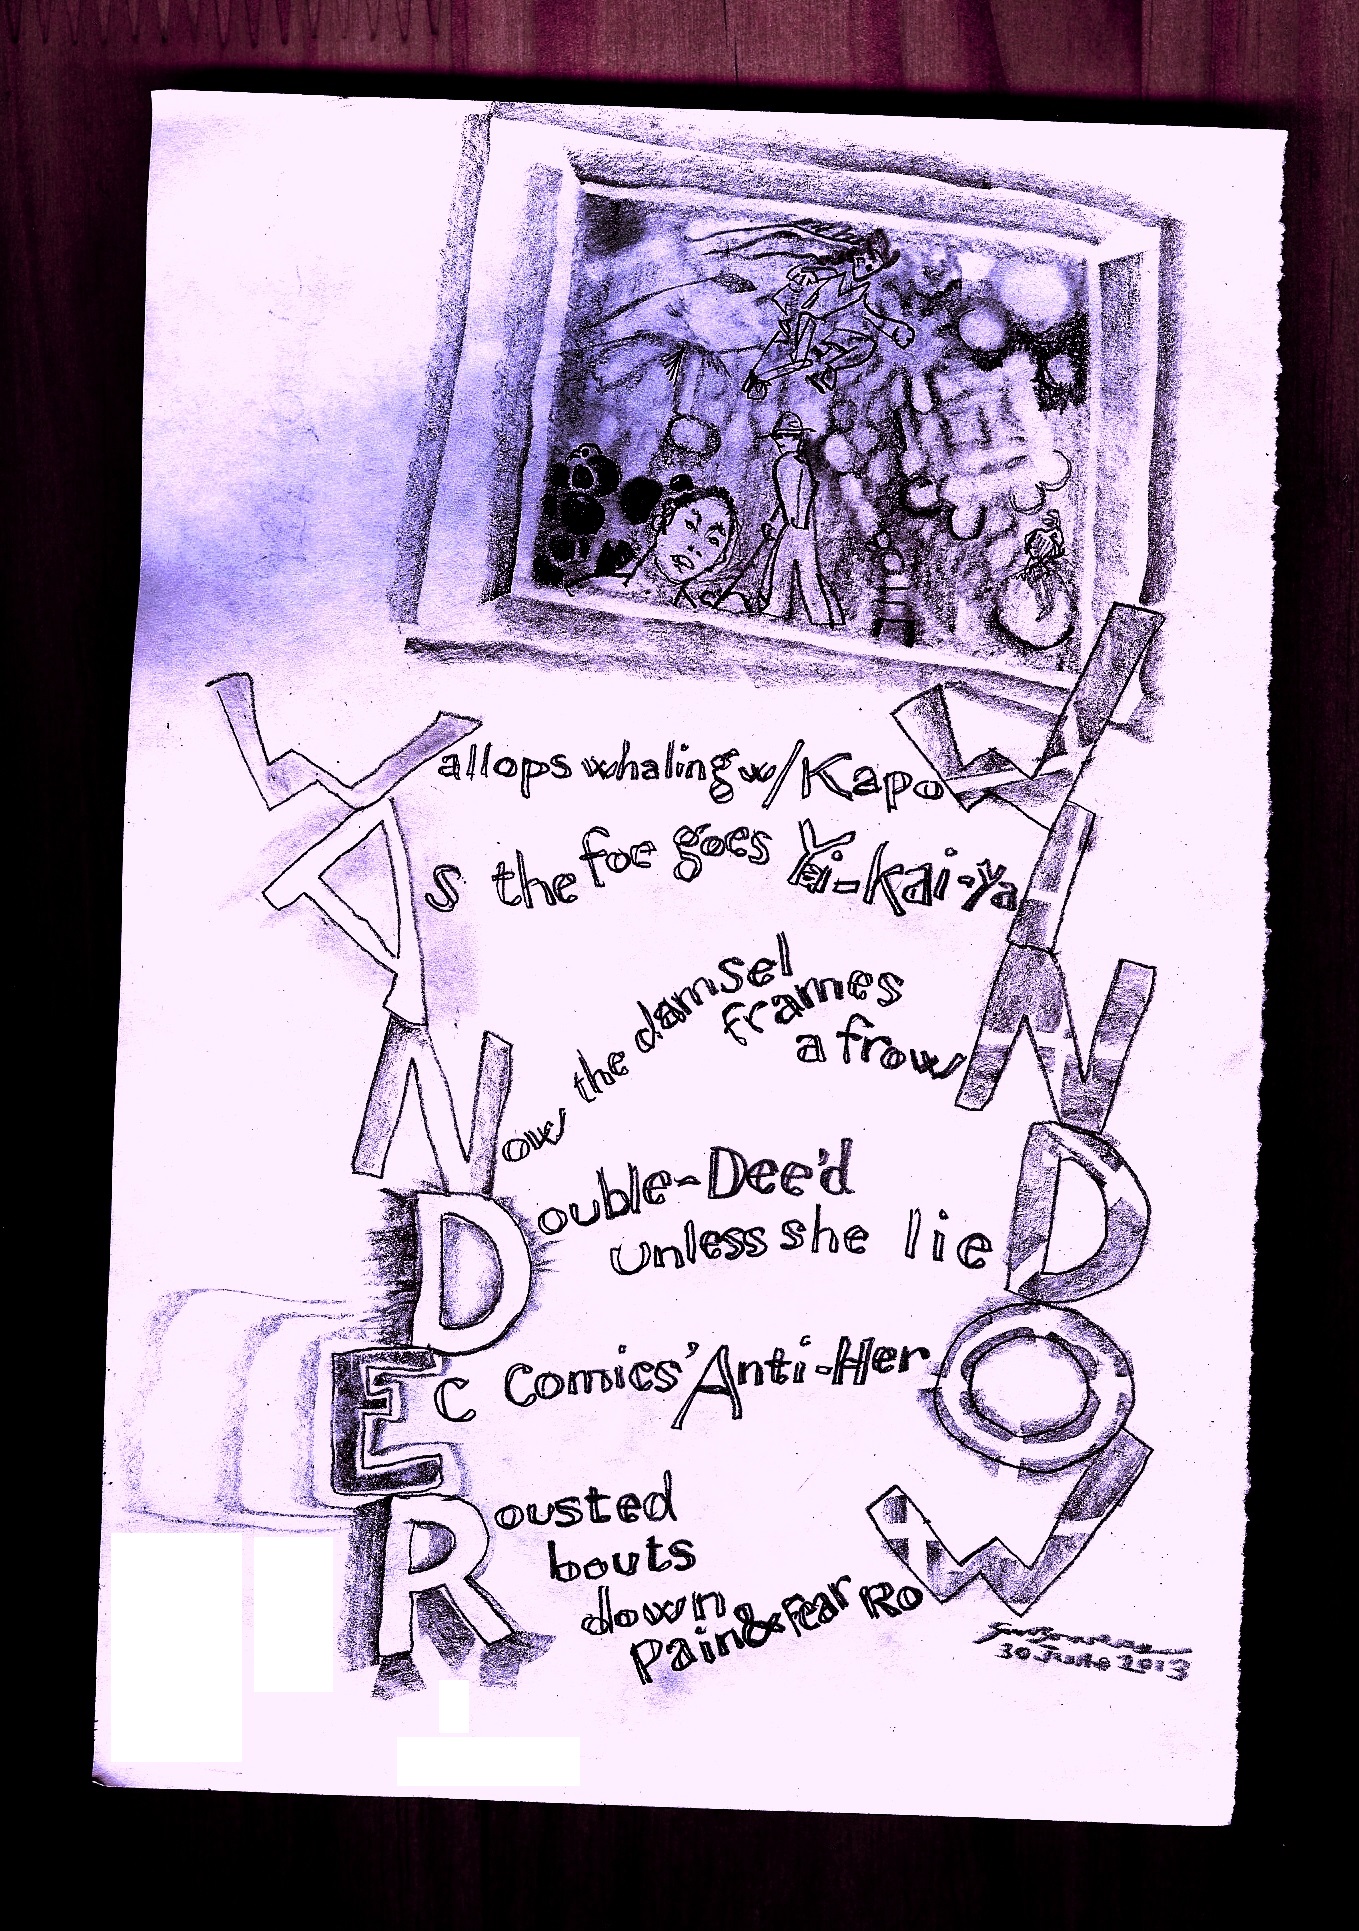 Wallops whaling w/KapoW
As the foe goes Yi-Kai-YaI
Now the damsel
frames
a frowN
Double-Dee'd
unless she lieD
Ec Comics' Anti-HerO
Rousted
bouts
down
Pain & Fear RoW
30 June 2013